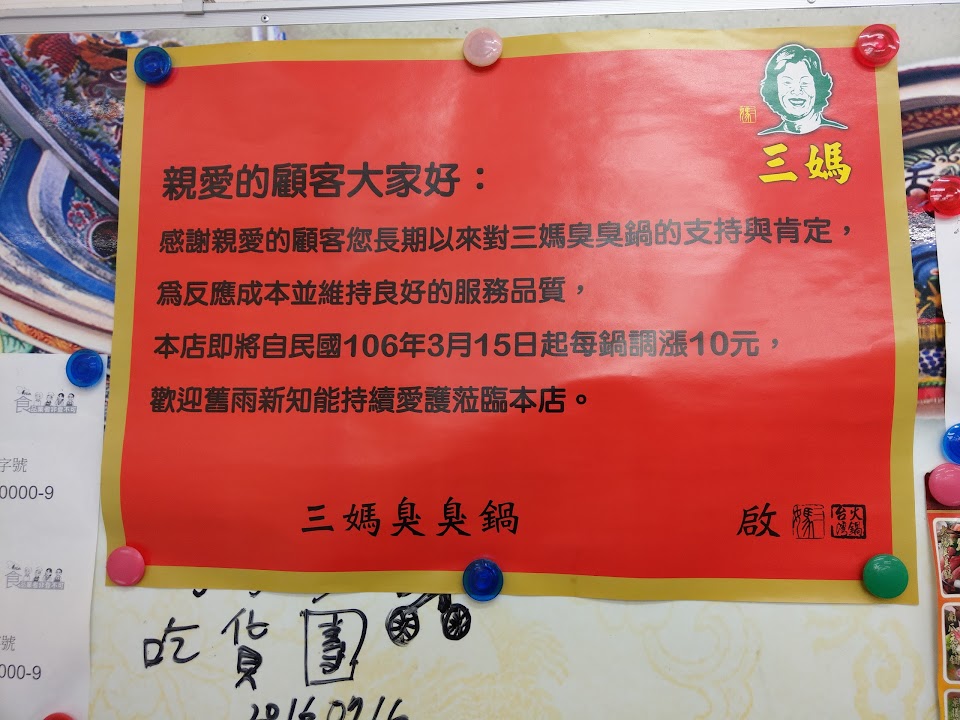 三媽
親愛的顧客大家好：
感謝親愛的顧客您長期以來對三媽臭臭鍋的支持與肯定，
為反應成本並維持良好的服務品質，
本店即將自民國106年3月15日起每鍋調漲10元，
歡迎舊雨新知能持續愛護蒞臨本店。
三媽臭臭鍋 啟
台灣火鍋
字號
0000-9
號
0000-9
吃貨團
2016.09.16